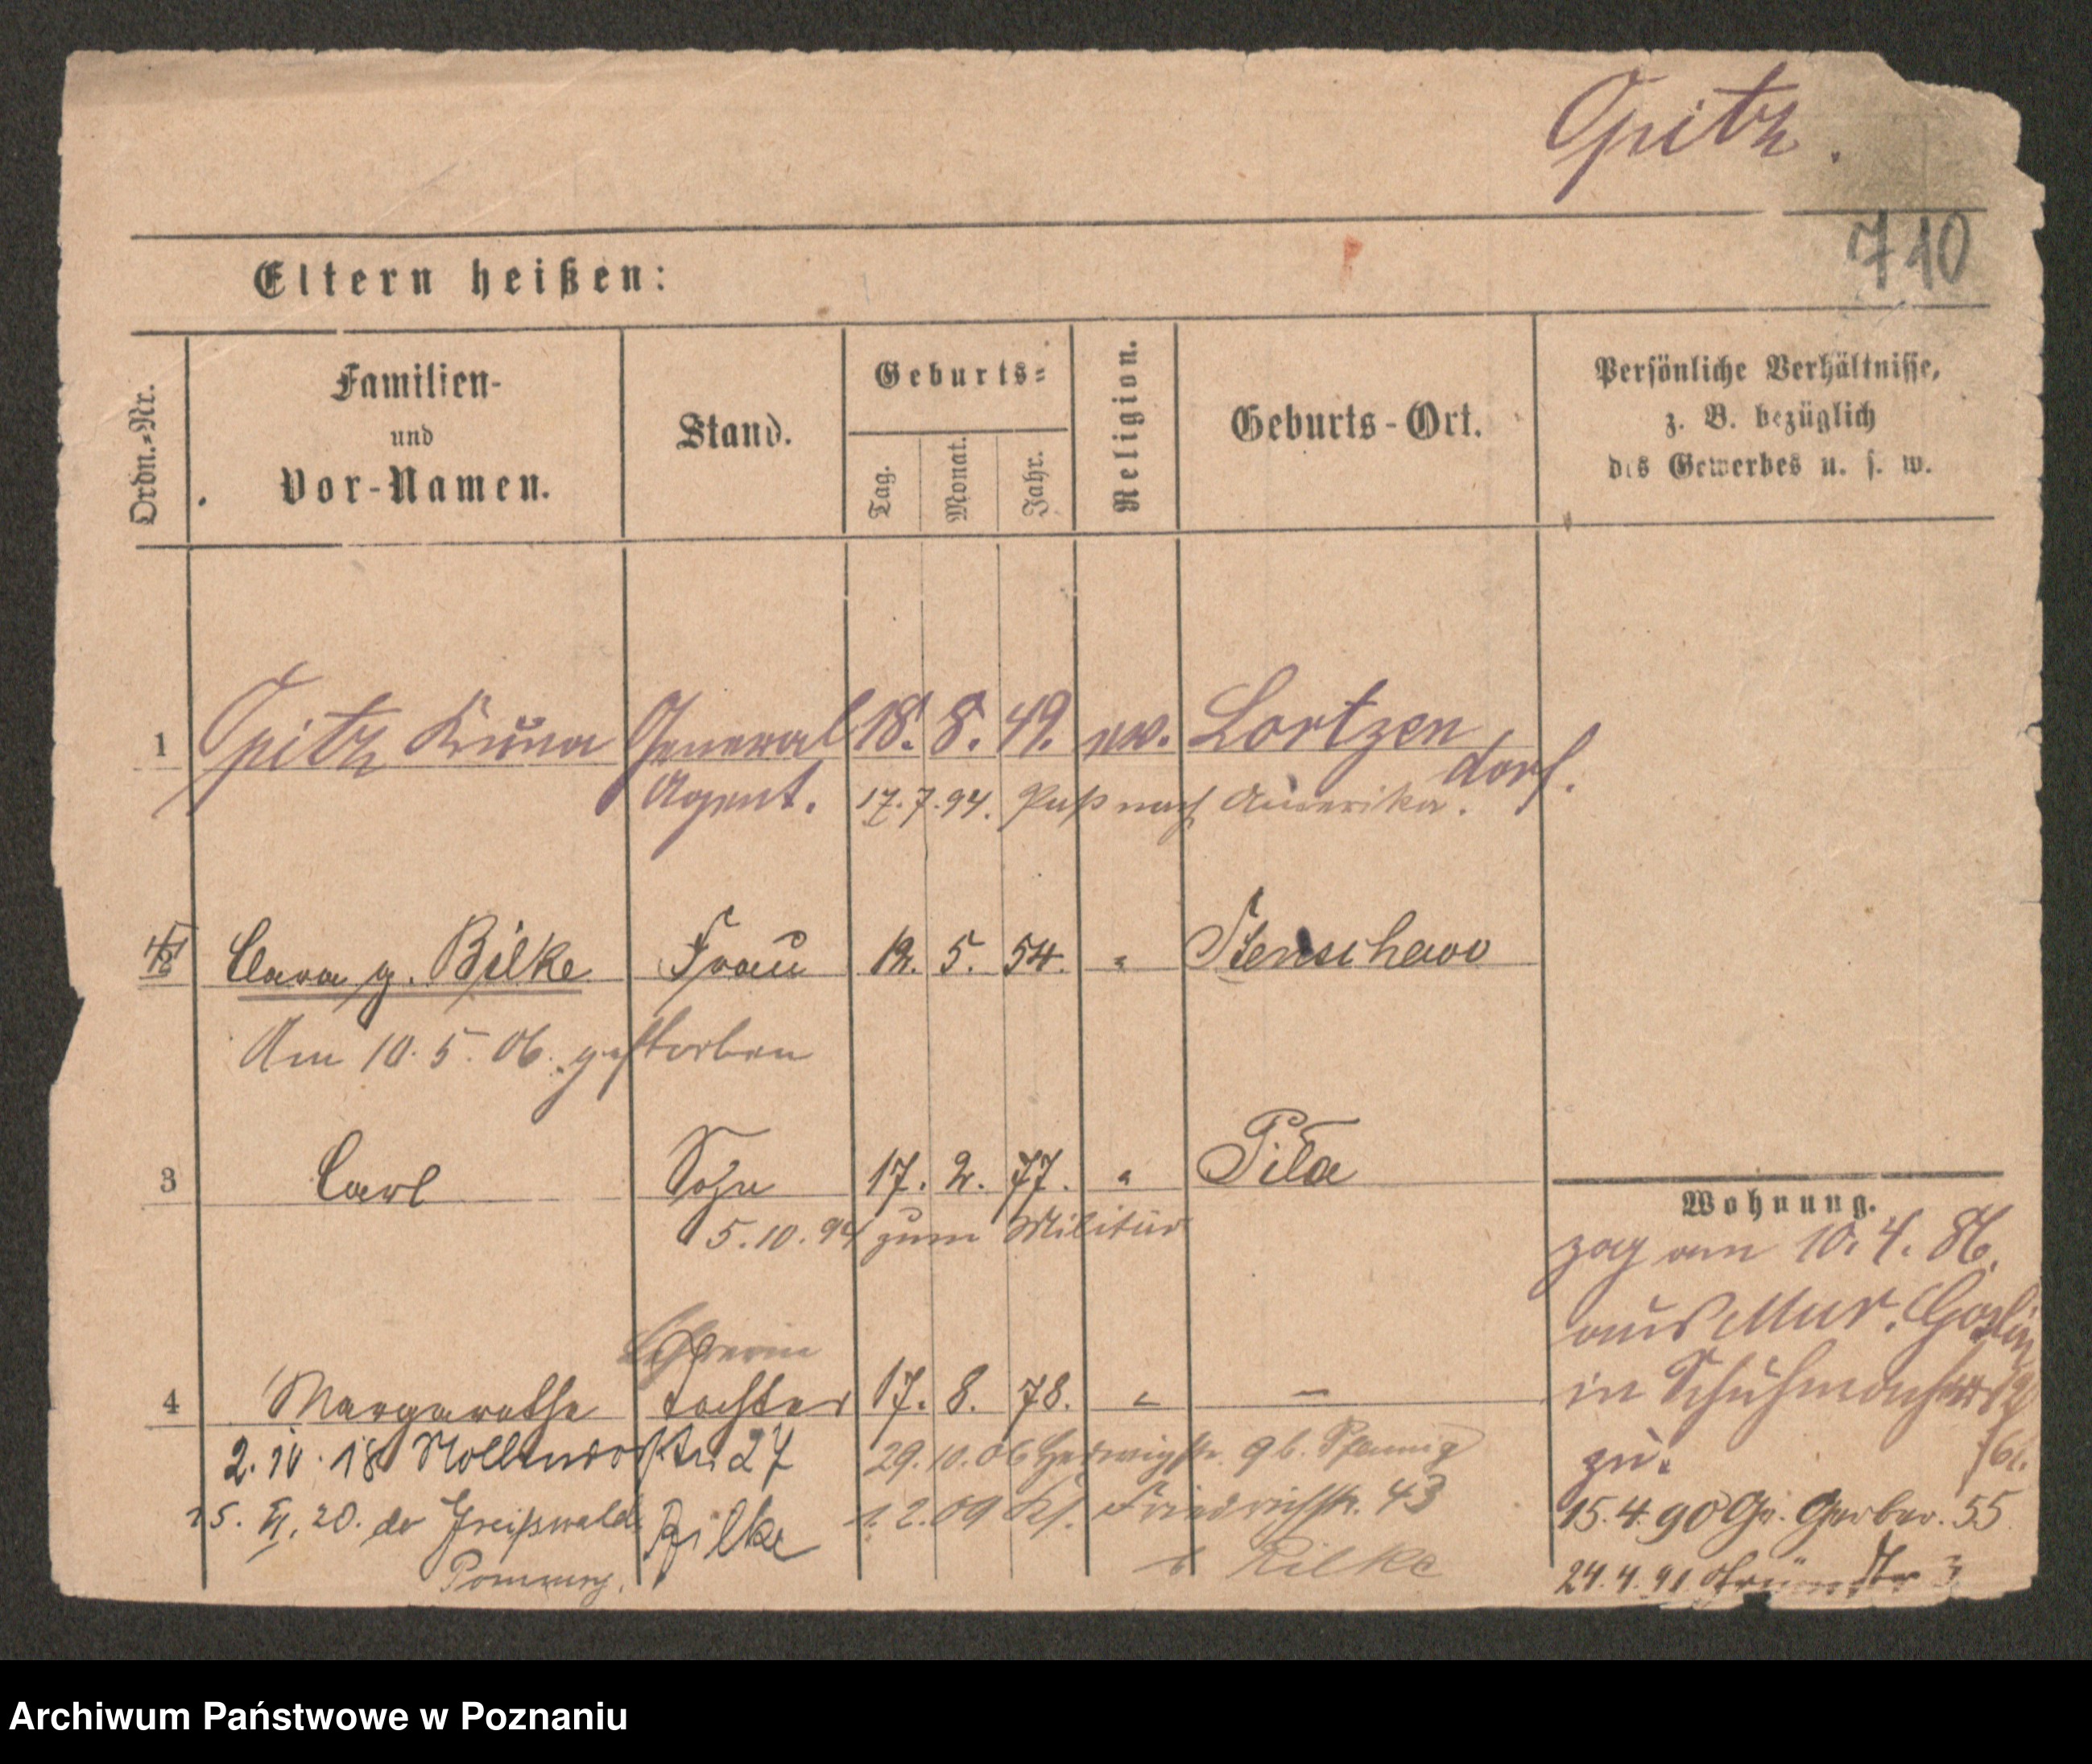 Opitz.
710
Eltern heißen:
Ordn.=Nr.
Familien-
und
Vor-Namen.
Stand.
Geburts=
Tag.
Monat.
Jahr.
Religion.
Geburts-Ort.
Persönliche Verhältnisse,
z. B. bezüglich
des Gewerbes u. s. w.
1 Opitz Bruno General 18. 8. 49. ev. Lortzen
Agent. dorf.
17.7.94. Paß nach Amerika.
2 Clara g. Bilke Frau 12. 5. 54. " Stenschewo
Am 10. 5. 06. gestorben
3 Carl Sohn 17. 2. 77. " Pila
5.10.94 zum Militär
Wohnung.
zog am 10. 4. 86.
aus Mur. Goslin
in Schuhmacherstr
zu.
Lehrerin
4 Margarethe Tochter 17. 8. 78. " —
2. IV. 18 Nollendorfstr. 27
29.10.06 Hedwigstr. 9 b. Pfennig
25. VI. 20. do Greifswald
Pommern.
Bilke
1.2.09 Kf. Friedrichstr. 43
b Bilke
15.4.90 Gr. Gerber. 55
24.4.91 Grüne Str 3
Archiwum Państwowe w Poznaniu